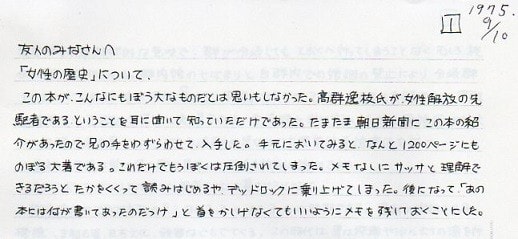 1975.
9/10
1
友人のみなさんへ
「女性の歴史」について．
この本が、こんなにもぼう大なものだとは思いもしなかった。高群逸枝氏が、女性解放の先
駆者であるということを耳に聞いて知っていただけであった。たまたま朝日新聞にこの本の紹
介があったので兄の手をわずらわせて、入手した。手元においてみると、なんと1200ページにも
のぼる大著である。これだけでもうぼくは圧倒されてしまった。メモなしにサッサと理解で
きるだろうとたかをくくって読みはじめるや、デッドロックに乗り上げてしまった。後になって、「あの
本には何が書いてあったのだっけ」と首をかしげなくてもいいようにメモを残しておくことにした。